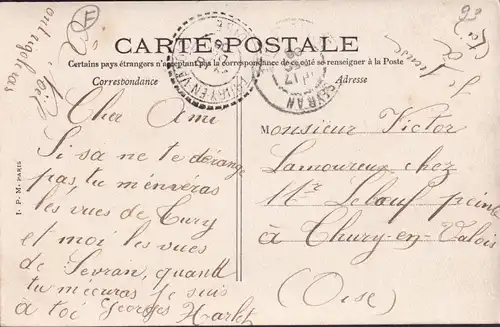 93
CARTE POSTALE
Certains pays étrangers n'acceptant pas la correspondance de ce côté se renseigner à la Poste
Correspondance
Adresse
Cher Ami
Si sa ne te dérange
pas tu m'enveras
les vues de Cury
et moi les vues
de Sevran, quant
tu m'écriras je suis
à toi Georges Harlet
Monsieur Victor
Lamoureux chez
Mr Lebœuf peintre
à Thury-en-Valois
(Oise)
I. P. M. PARIS
SEVRAN
17
THURY EN V
OISE
E